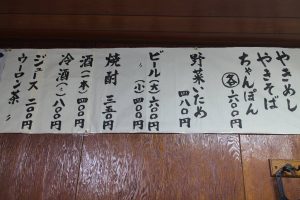 やきめし
やきそば
ちゃんぽん
各 六〇〇円
野菜いため
四八〇円
ビール(大)六〇〇円
〃(小)四〇〇円
焼酎 三五〇円
酒(一本)四〇〇円
冷酒(〃)八〇〇円
ジュース 二〇〇円
ウーロン茶 〃